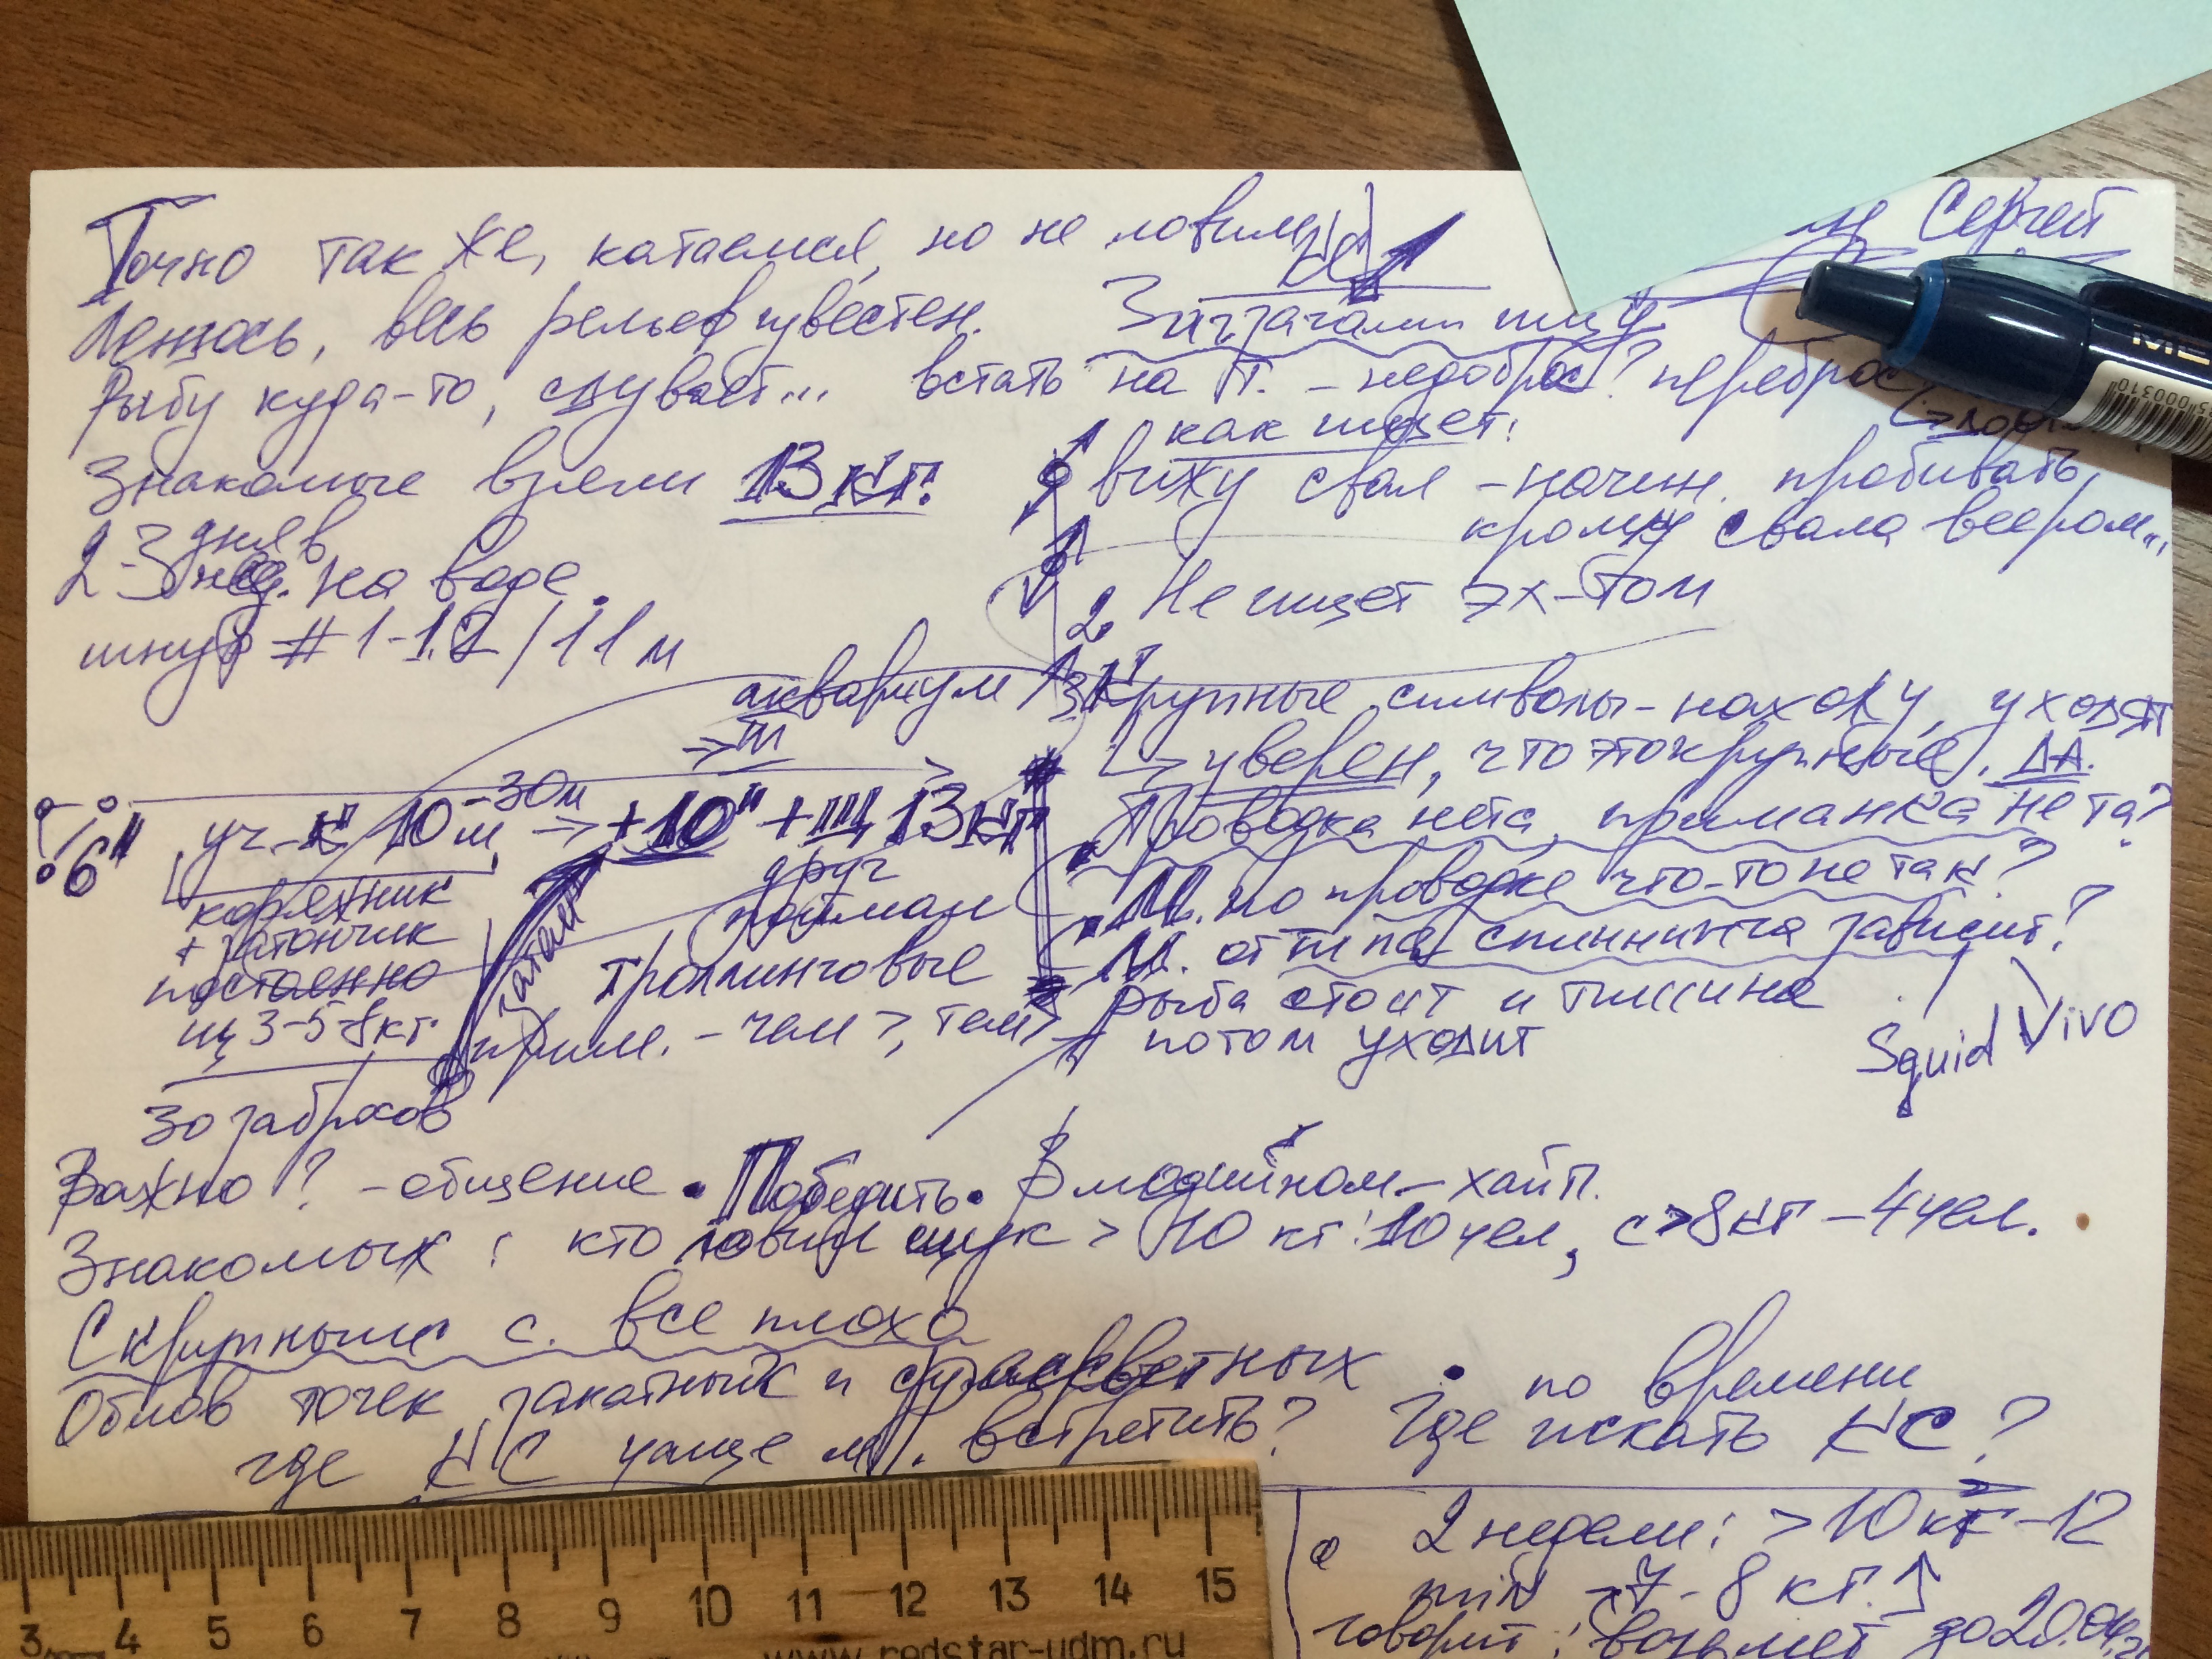 Точно так же, катаемся, но не ловим
КС
Сергей
весь рельеф известен.
Зигзагами ищу
Рыбу куда-то, сдувает... встать на т. - недоброс? переброс?
как ищет:
Знакомые 13 кг.
вижу свал - начин. пробивать,
кромку свала веером...
2-3 дня в
нед. на воде.
2. Не ищет эх-том
шнур # 1-1.2 / 11 м
аквариум
Крупные символы - нахожу, уходят
→ уверен, что это крупные. ДА.
6" уч-к 10 м -30м → +10" + щ, 13 кг
Проводка не та, приманка не та?
коряжник
друг
М. по проводке что-то не так?
+ затончик
поймал
постоянно
М. от типа спиннинга зависит?
щ 3-5-8 кг.
троллинговые
прим. - чем >, тем >
рыба стоит и тишина
потом уходит
Squid Vivo
30 забросов
Важно? - общение • Победить. В модийном - хайп.
Знакомых: кто ловил щук > 10 кг: 10 чел, с >8 кг - 4 чел.
С крупными с. все плохо
Облов точек закатных и • по времени
где КС чаще м. встретить? Где искать КС?
2 недели: > 10 кг - 12
min 7-8 кг. ↑
говорит: до 20.04.
3 4 5 6 7 8 9 10 11 12 13 14 15
www.redstar-udm.ru
000310